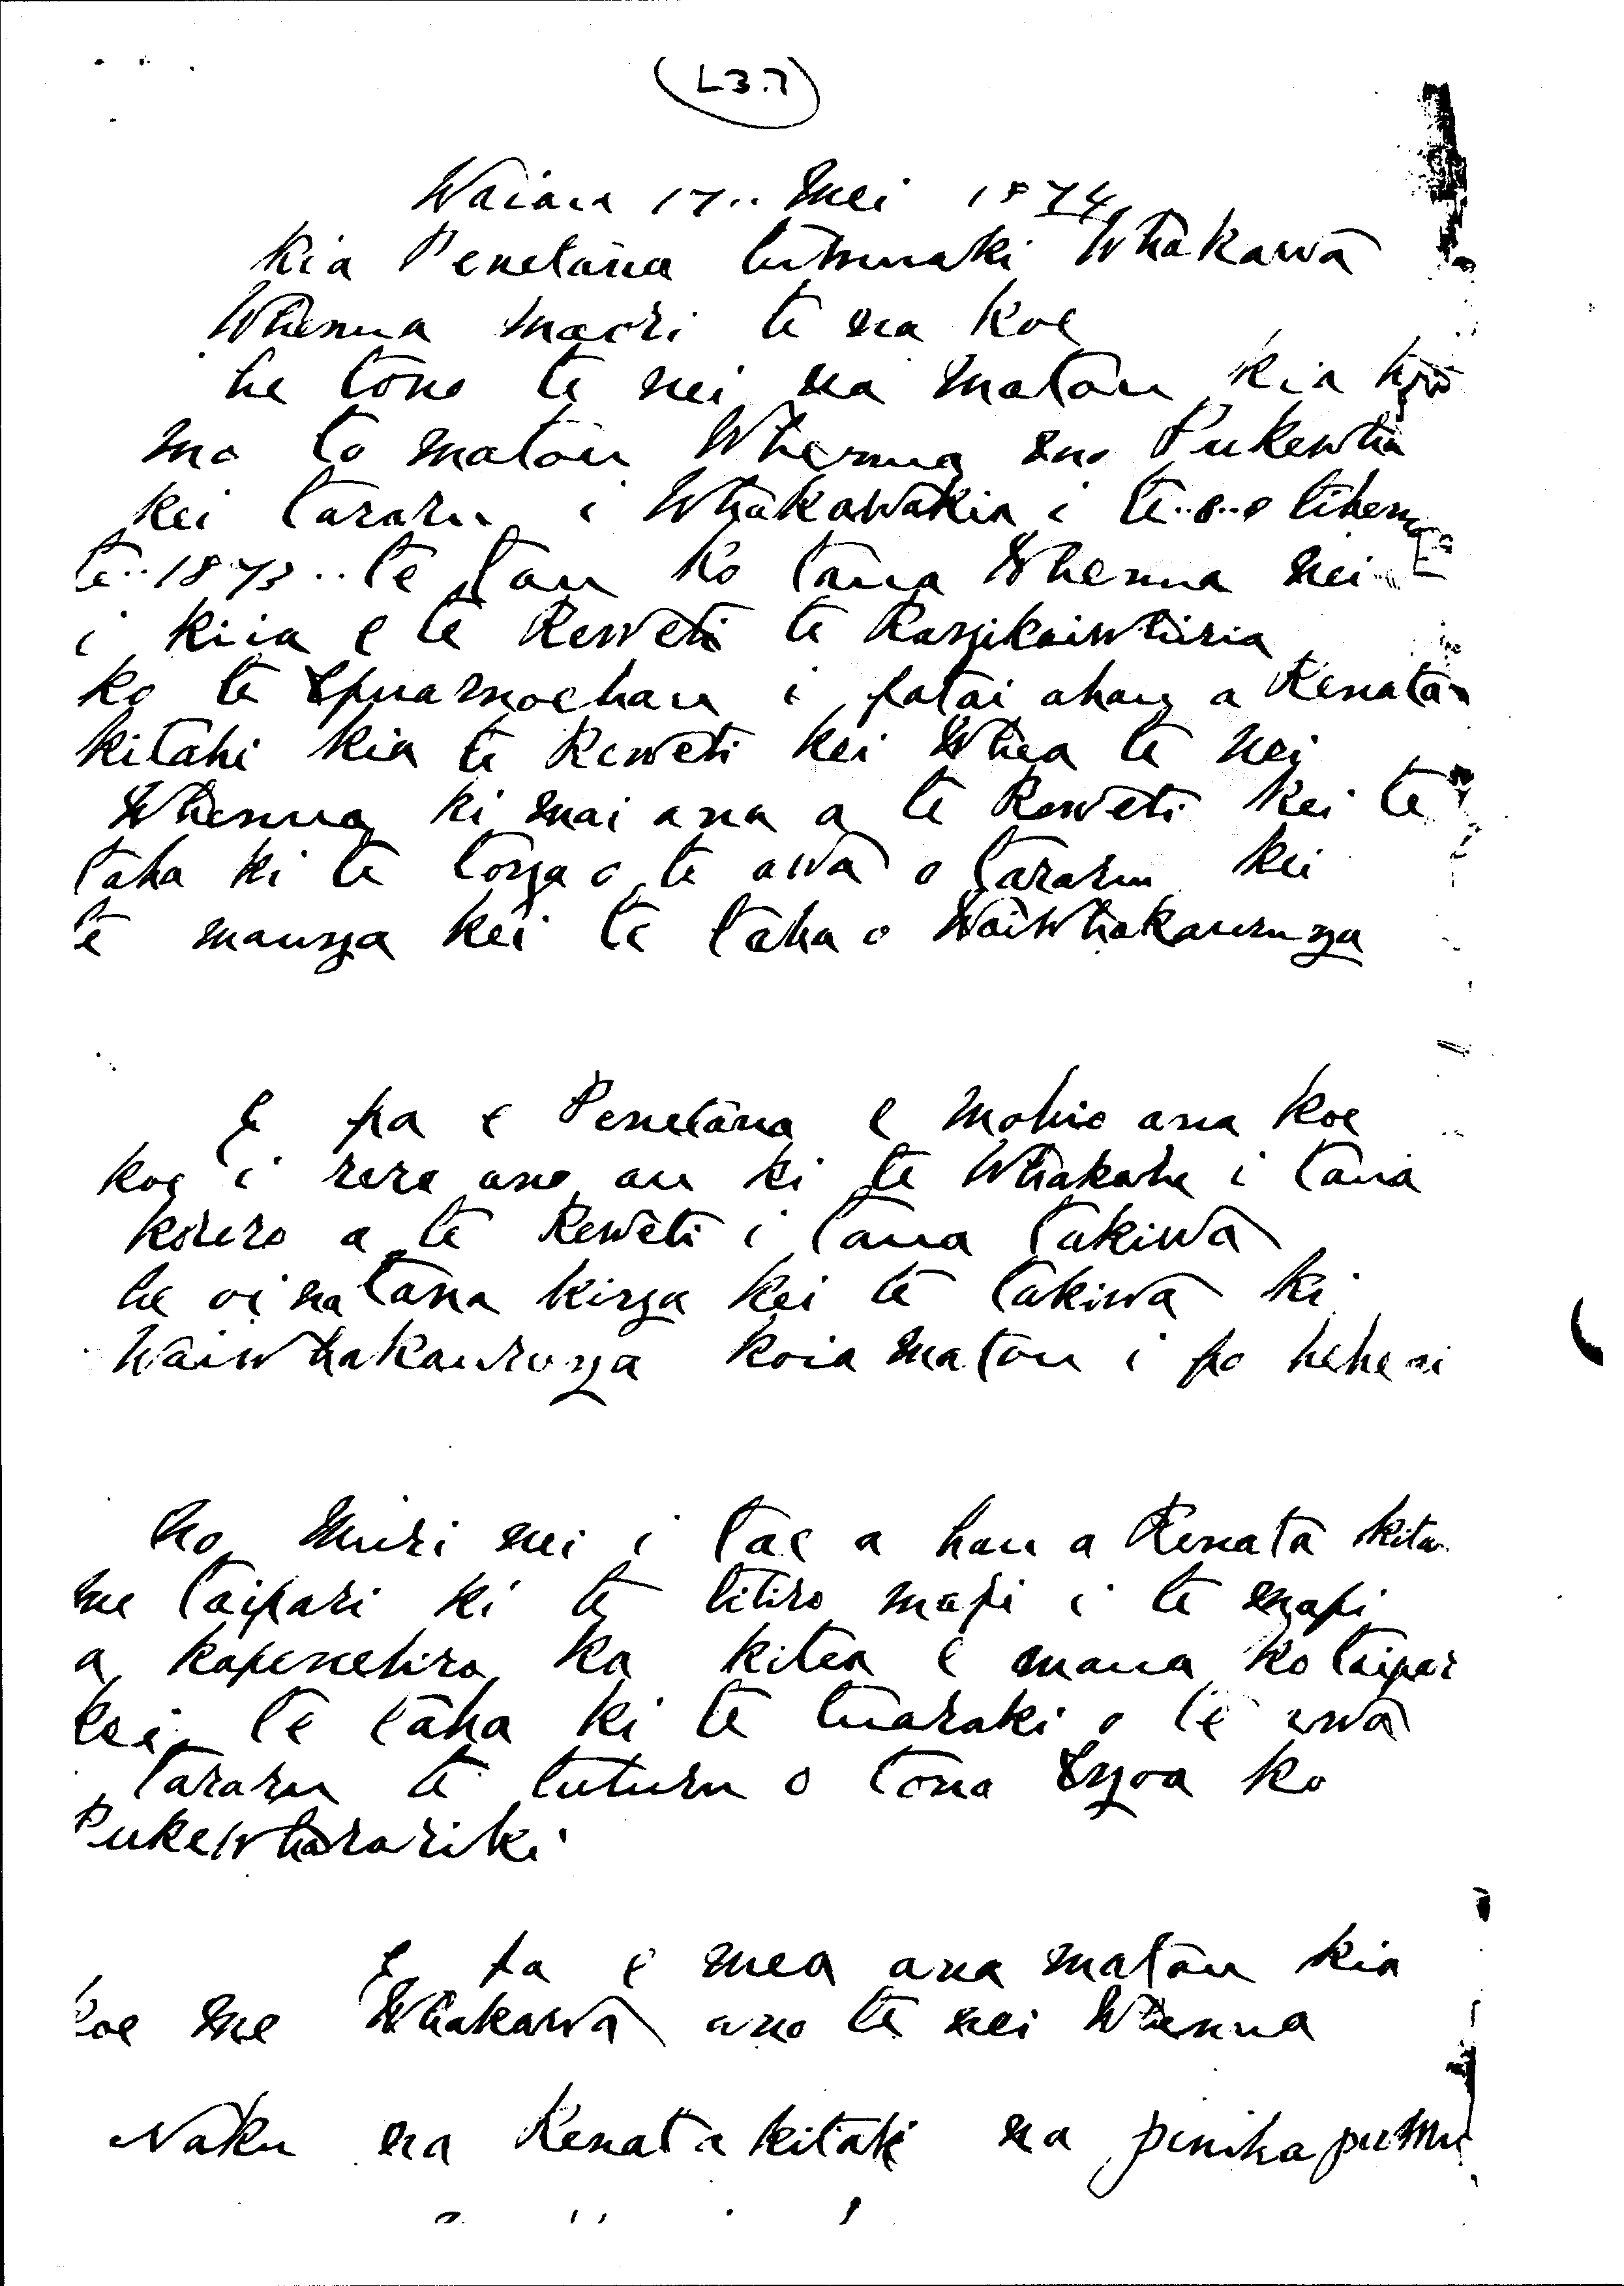 (L3.7)
Waiau 17.. Mei 1874
Kia Penetana tumuaki Whakawa
Whenua maori te na koe
he tono te nei na matou kia koe
mo to matou Whenua mo Pukewha
kei tararu i Whakawakia i te..8..o tihema
te..1873..te tau ko taua Whenua nei
i kiia e te Reweti te Rangikaiwhiria
ko te Ipuamoehau i patai ahau a Renata
kitahi kia te Reweti kei Whea te nei
Whenua ki mai ana a te Reweti kei te
taha ki te tonga o te awa o tararu kei
te maunga kei te taha o Waiwhakaurunga
E pa e Penetana e mohio ana koe
koe i rere ano au ki te Whakahe i taua
korero a te Reweti i taua takiwa
he oi na tana kinga kei te takiwa ki
Waiwhakaurunga koia matou i po hehe ai
No Muri nei i tae a hau a Renata kita
me taipari ki te titiro mapi i te mapi
a kapenehira ka kitea e maua ko taipar
kei te taha ki te tuaraki o te awa
tararu te tuturu o tona Ingoa ko
Pukewharariki
E pa e mea ana matou kia
koe me Whakawa ano te nei Whenua
Naku na Renata kitahi na pinihapumu